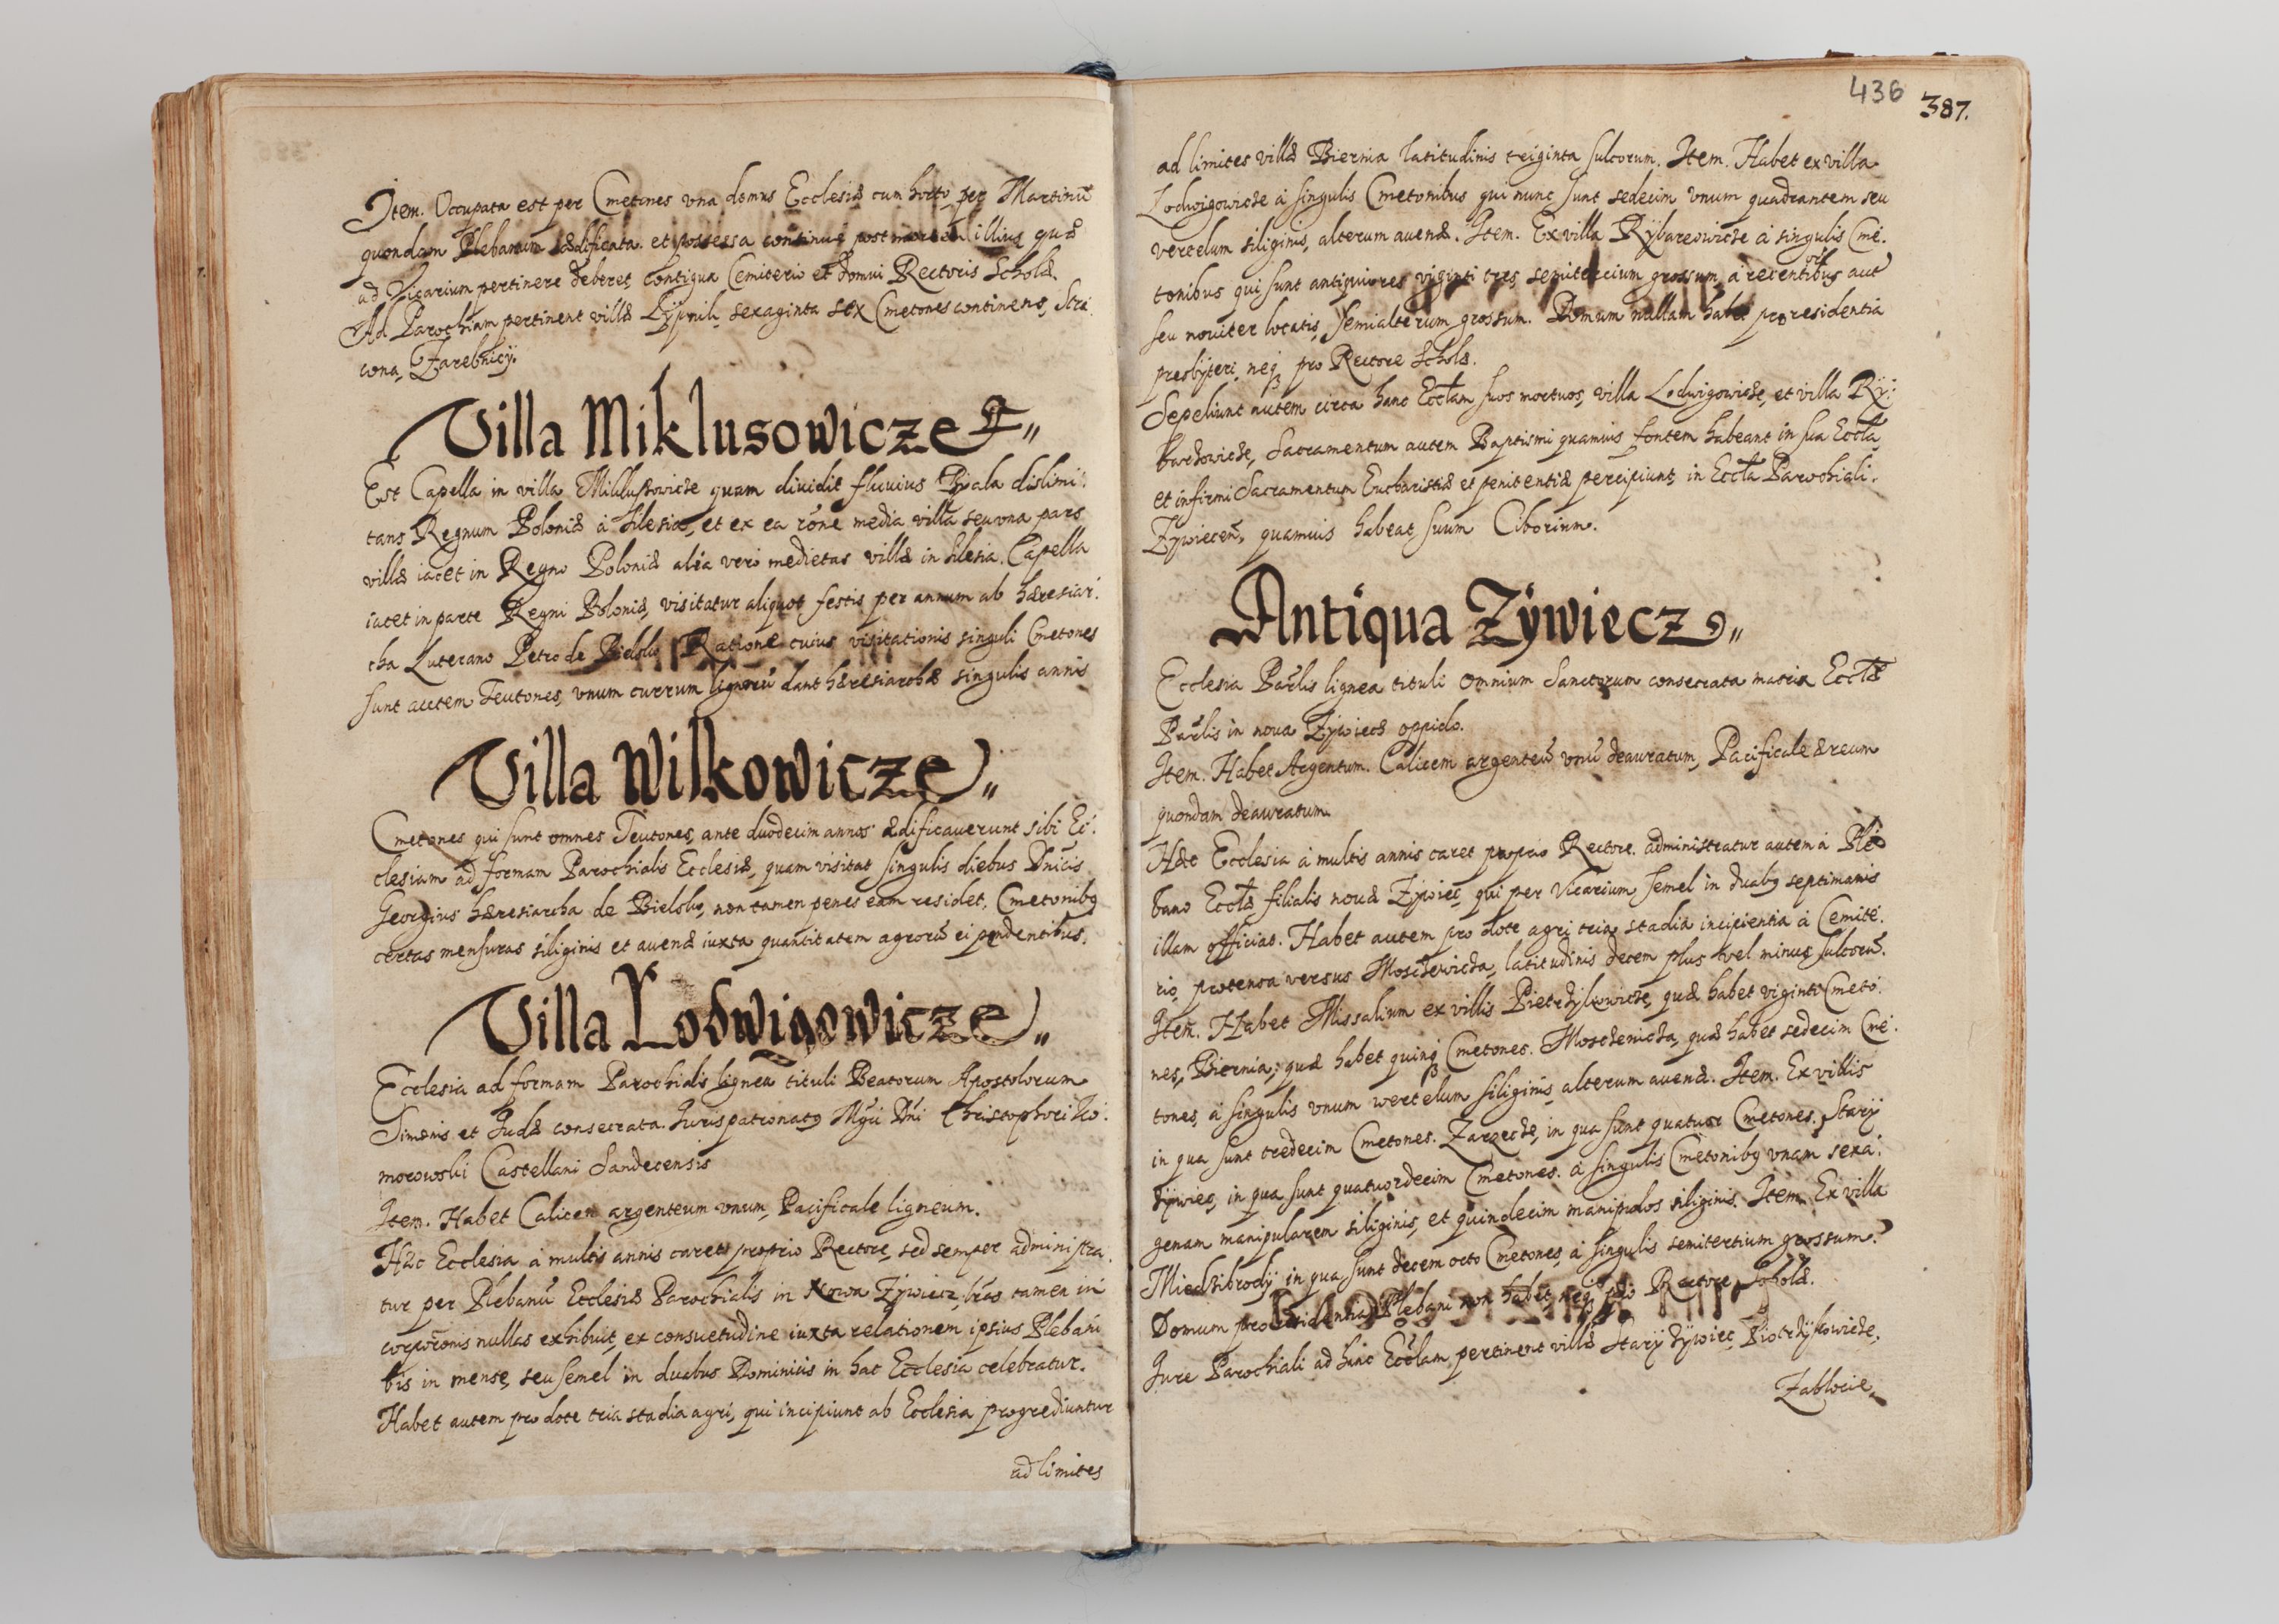 Item. Occupata est per Cmetones vna domus Ecclesiæ cum horto per Martinū
quondam Plebanum ædificata et possessa continuè post mortem illius quæ
ad Vicarium pertinere deberet, contigua Cemiterio et domui Rectoris Scholæ.
Ad Parochiam pertinent villæ Lÿpnik, sexaginta sex Cmetones continens, Stra
cona, Zarebnicÿ.
Villa Miklusowicze
Est Capella in villa Miklussowicze quam diuidit fluuius Biala dislimi:
tans Regnum Poloniæ à Silesia, et ex ea rōne media villa seu vna pars
villæ iacet in Regno Poloniæ alia verò medietas villæ in Silesia. Capella
iacet in parte Regni Poloniæ, visitatur aliquot festis per annum ab hæresiar:
cha Luterano Petro de Bielsko Ratione cuius visitationis singuli Cmetones
sunt autem Teutones, vnum currum lignorū dant hæresiarchæ singulis annis
Villa Wilkowicze
Cmetones qui sunt omnes Teutones, ante duodecim annos ædificauerunt sibi Ec:
clesiam ad formam Parochialis Ecclesiæ, quam visitat singulis diebus Dnicis
Georgius hæresiarcha de Bielsko, non tamen penes eam residet, Cmetonibꝯ
certas mensuras siliginis et auenæ iuxta quantitatem agrorū ei pendentibus.
Villa Lodwigowicze
Ecclesia ad formam Parochialis lignea tituli Beatorum Apostolorum
Simonis et Judæ consecrata. Juris patronatꝯ Mgci Dni Christophori Ko:
morowski Castellani Sandecensis
Item. Habet Calicem argenteum vnum, Pacificale ligneum.
Hæc Ecclesia à multis annis caret proprio Rectore, sed semper administra:
tur per Plebanū Ecclesiæ Parochialis in Nowa Zÿwiecz, lras tamen in
corporōnis nullas exhibuit, ex consuetudine iuxta relationem ipsius Plebani
bis in mense, seu semel in duabus Dominicis in hac Ecclesia celebratur.
Habet autem pro dote tria stadia agri, qui incipiunt ab Ecclesia progrediuntur
ad limites
436
387.
ad limites villæ Biernia latitudinis triginta sulcorum. Item. Habet ex villa
Lodwigowicze à singulis Cmetonibus qui nunc sunt sedecim vnum quadrantem seu
vertelum siliginis, alterum auenæ. Item. Ex villa Rÿbarzowicze à singulis Cme:
tonibus qui sunt antiquiores viginti tres semitertium grossum, à recentioribus aut
seu nouiter locatis, semialterum grossum. Domum nullam habet pro residentia
presbÿteri, neqꝫ pro Rectore Scholæ.
Sepeliunt autem circa hanc Ecclam suos mortuos, villa Lodwigowicze, et villa Rÿ:
barzowicze, Sacramentum autem Baptismi quamuis fontem habeant in sua Eccla,
et infirmi Sacramentum Eucharistiæ et penitentiæ percipiunt, in Eccla Parochiali.
Zÿwiecen, quamuis habeat suum Ciborium.
Antiqua Zÿwiecz
Ecclesia Parlis lignea tituli Omnium Sanctorum consecrata matrix Ecclæ
Parlis in noua Zÿwiecz oppido.
Item. Habet Argentum. Calicem argenteū vnū deauratum, Pacificale æreum
quondam deauratum.
Hæc Ecclesia à multis annis caret proprio Rectore. administratur autem à Ple
bano Ecclæ filialis nouæ Zÿwiec, qui per Vicarium semel in duabꝯ septimanis
illam officiat. Habet autem pro dote agri tria stadia incipientia à Cemite:
rio, protensa versus Mosczenicza, latitudinis decem plus vel minus sulcorū.
Item. Habet Missalium ex villis Pietrzÿkowicze, quæ habet viginti Cmeto:
nes, Biernia; quæ habet quinqꝫ Cmetones. Moszczenicza, quæ habet sedecim Cme:
tones, à singulis vnum wertelum siliginis, alterum auenæ. Item. Ex villis
in qua sunt tredecim Cmetones. Zarzecze, in qua sunt quatuor Cmetones. Starÿ
zÿwiec, in qua sunt quatuordecim Cmetones. à singulis Cmetonibꝯ vnam sexa:
genam manipularem siliginis, et quindecim manipulos siliginis. Item. Ex villa
Miedzibrodÿ in qua sunt decem octo Cmetones, à singulis semitertium grossum.
Domum pro residentia Plebani non habet, neqꝫ pro Rectore Scholæ.
Jure Parochiali ad hanc Ecclam pertinent villæ Starÿ zÿwiec, Piotrzÿkowicze,
Zablocie